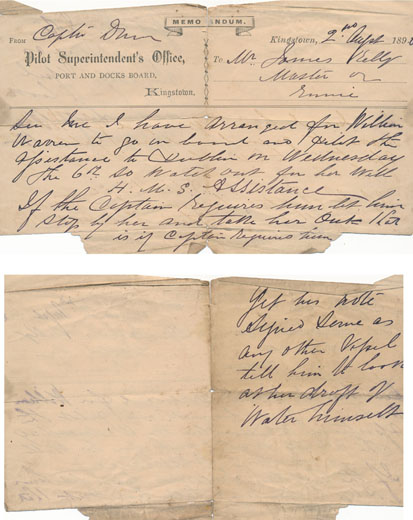 MEMORANDUM.
FROM Captn Dunn
Kingstown, 2nd Augt 189
Pilot Superintendent's Office,
To Mr James Kelly
PORT AND DOCKS BOARD,
Master
Kingstown.
Dear I have arranged for William
Warren to go on board and pilot the
Assistance to Dublin on Wednesday
The 6th So Watch out for her Will
H. M. S. Assistance
If the Captain Requires him let him
Stop by her and take her Out that
is if Captain Requires him
Get his note
Signed Same as
any other Vessel
till him to look
at her draft of
Water himself